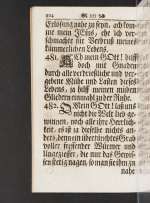 224
Erlösung nahe zu seyn, ach kom-
me mein JEsus, ehe ich ver-
schmachte für Verdruß meines
kümmerlichen Lebens.
481. Ach mein GOtt! hilff
doch mit Gnaden
durch alle verdrießliche und ver-
gebene Mühe und haben dieses
Lebens, ja hilff meinen müden
Gliedern einmahl zu der Ruhe.
482. O Mein GOtt laß uns
nicht die Welt lieb ge-
winnen, noch alle ihre Herrlich-
keit, es ist ja dieselbe nichts an-
ders, denn ein übertünchtes Grab
voller fressender Würmer und
Ungeziefer, die nur das Gewis-
sen stetig nagen, so man sie ihn zu
nahe